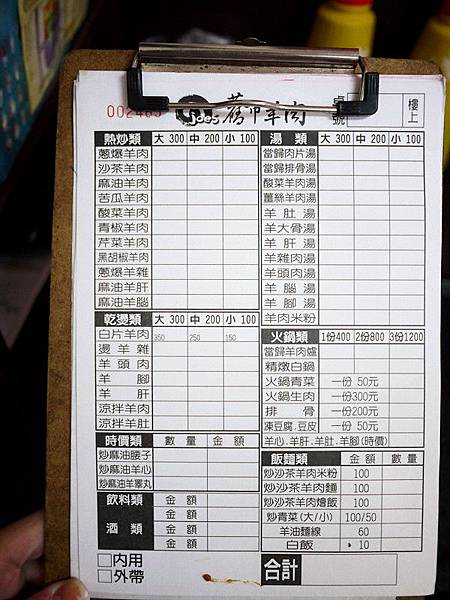 舊甲羊肉 桌號 樓上
熱炒類 大 300 中 200 小 100
蔥爆羊肉
沙茶羊肉
麻油羊肉
苦瓜羊肉
酸菜羊肉
青椒羊肉
芹菜羊肉
黑胡椒羊肉
蔥爆羊雜
麻油羊肝
麻油羊腦
乾燙類 大 300 中 200 小 100
白片羊肉 350 250 150
燙羊雜
羊頭肉
羊腳
羊肝
涼拌羊肉
涼拌羊肚
時價類 數量 金額
炒麻油腰子
炒麻油羊心
炒麻油羊睪丸
飲料類 金額
金額
酒類 金額
金額
內用
外帶
湯類 大 300 中 200 小 100
當歸肉片湯
當歸排骨湯
酸菜羊肉湯
薑絲羊肉湯
羊肚湯
羊大骨湯
羊肝湯
羊雜肉湯
羊頭肉湯
羊腦湯
羊腳湯
羊肉米粉
火鍋類 1份400 2份800 3份1200
當歸羊肉爐
精燉白鍋
火鍋青菜 一份 50元
火鍋生肉 一份300元
排骨 一份200元
凍豆腐.豆皮 一份 50元
羊心.羊肝.羊肚.羊腳(時價)
飯麵類 金額 數量
炒沙茶羊肉米粉 100
炒沙茶羊肉麵 100
炒沙茶羊肉燴飯 100
炒青菜(大/小) 100/50
羊油麵線 60
白飯 10
合計